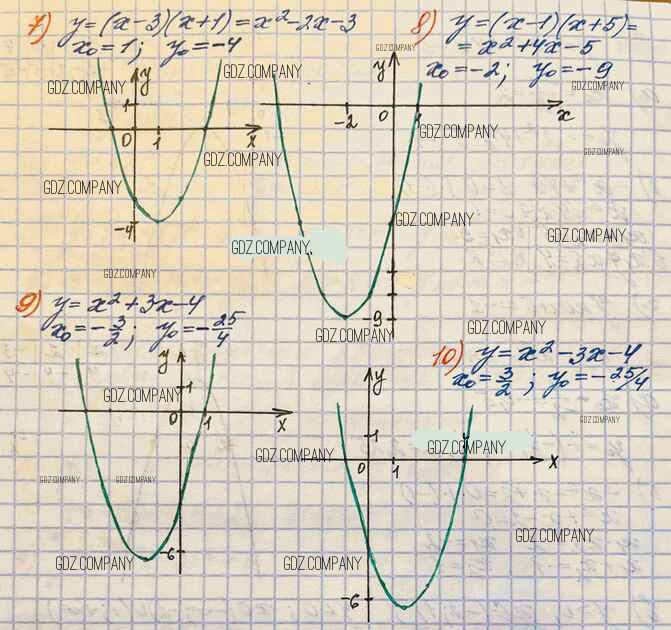 7) y = (x-3)(x+1) = x²-2x-3
x₀ = 1; y₀ = -4
GDZ.COMPANY
GDZ.COMPANY
y
1
0
1
x
GDZ.COMPANY
GDZ.COMPANY
-4
GDZ.COMPANY
8) y = (x-1)(x+5) =
= x²+4x-5
x₀ = -2; y₀ = -9
GDZ.COMPANY
GDZ.COMPANY
y
-2
0
1
x
GDZ.COMPANY
GDZ.COMPANY
GDZ.COMPANY
GDZ.COMPANY
GDZ.COMPANY
-9
GDZ.COMPANY
9) y = x²+3x-4
x₀ = -3/2; y₀ = -25/4
y
1
GDZ.COMPANY
0
1
x
GDZ.COMPANY
GDZ.COMPANY
-6
GDZ.COMPANY
GDZ.COMPANY
10) y = x²-3x-4
x₀ = 3/2; y₀ = -25/4
y
1
GDZ.COMPANY
GDZ.COMPANY
GDZ.COMPANY
0
1
x
GDZ.COMPANY
GDZ.COMPANY
-6